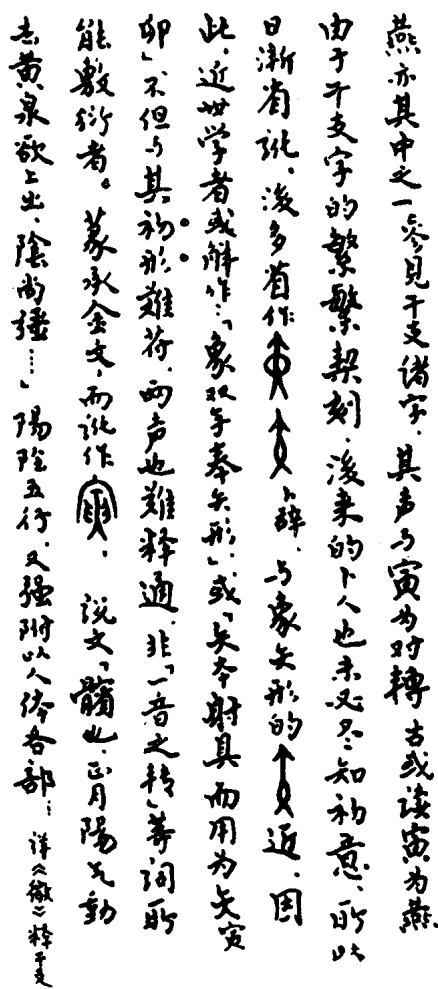 燕亦其中之一參見干支诸字．其声与寅为对轉 古或读寅为燕．
由于干支字的繁繁契刻．後来的卜人也未必尽知初意．所以
日渐省訛．後多省作 卜辞．与象矢形的 近．因
此．近世学者或解作：「象双手奉矢形」．或「矢本射具而用为矢寅
卯」不但与其初形難符．两声也難释通．非「一音之转」等词所
能敷衍者。 篆承金文．而訛作 ． 説文「髕也．正月陽气動
去黄泉欲上出．陰尚强……」陽陰五行．又强附以人体各部： 详《徵》释干支